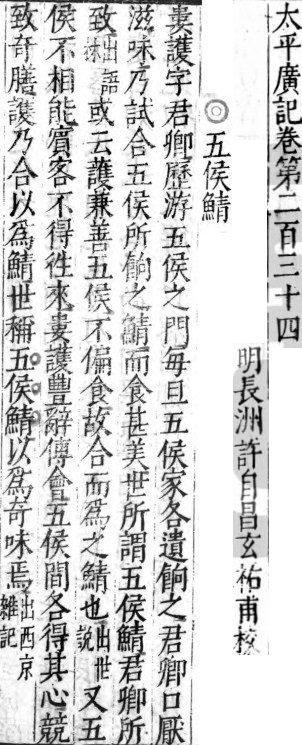 太平廣記卷第二百三十四
明長洲許自昌玄祐甫校
◎五侯鯖
婁護字君卿歷游五侯之門每旦五侯家各遺餉之君卿口厭
滋味乃試合五侯所餉之鯖而食甚美世所謂五侯鯖君卿所
致出語林或云護兼善五侯不偏食故合而為之鯖也出世說又五
侯不相能賓客不得徃來婁護豐辭傳會五侯間各得其心競
致奇膳護乃合以為鯖世稱五侯鯖以為奇味焉出西京雜記